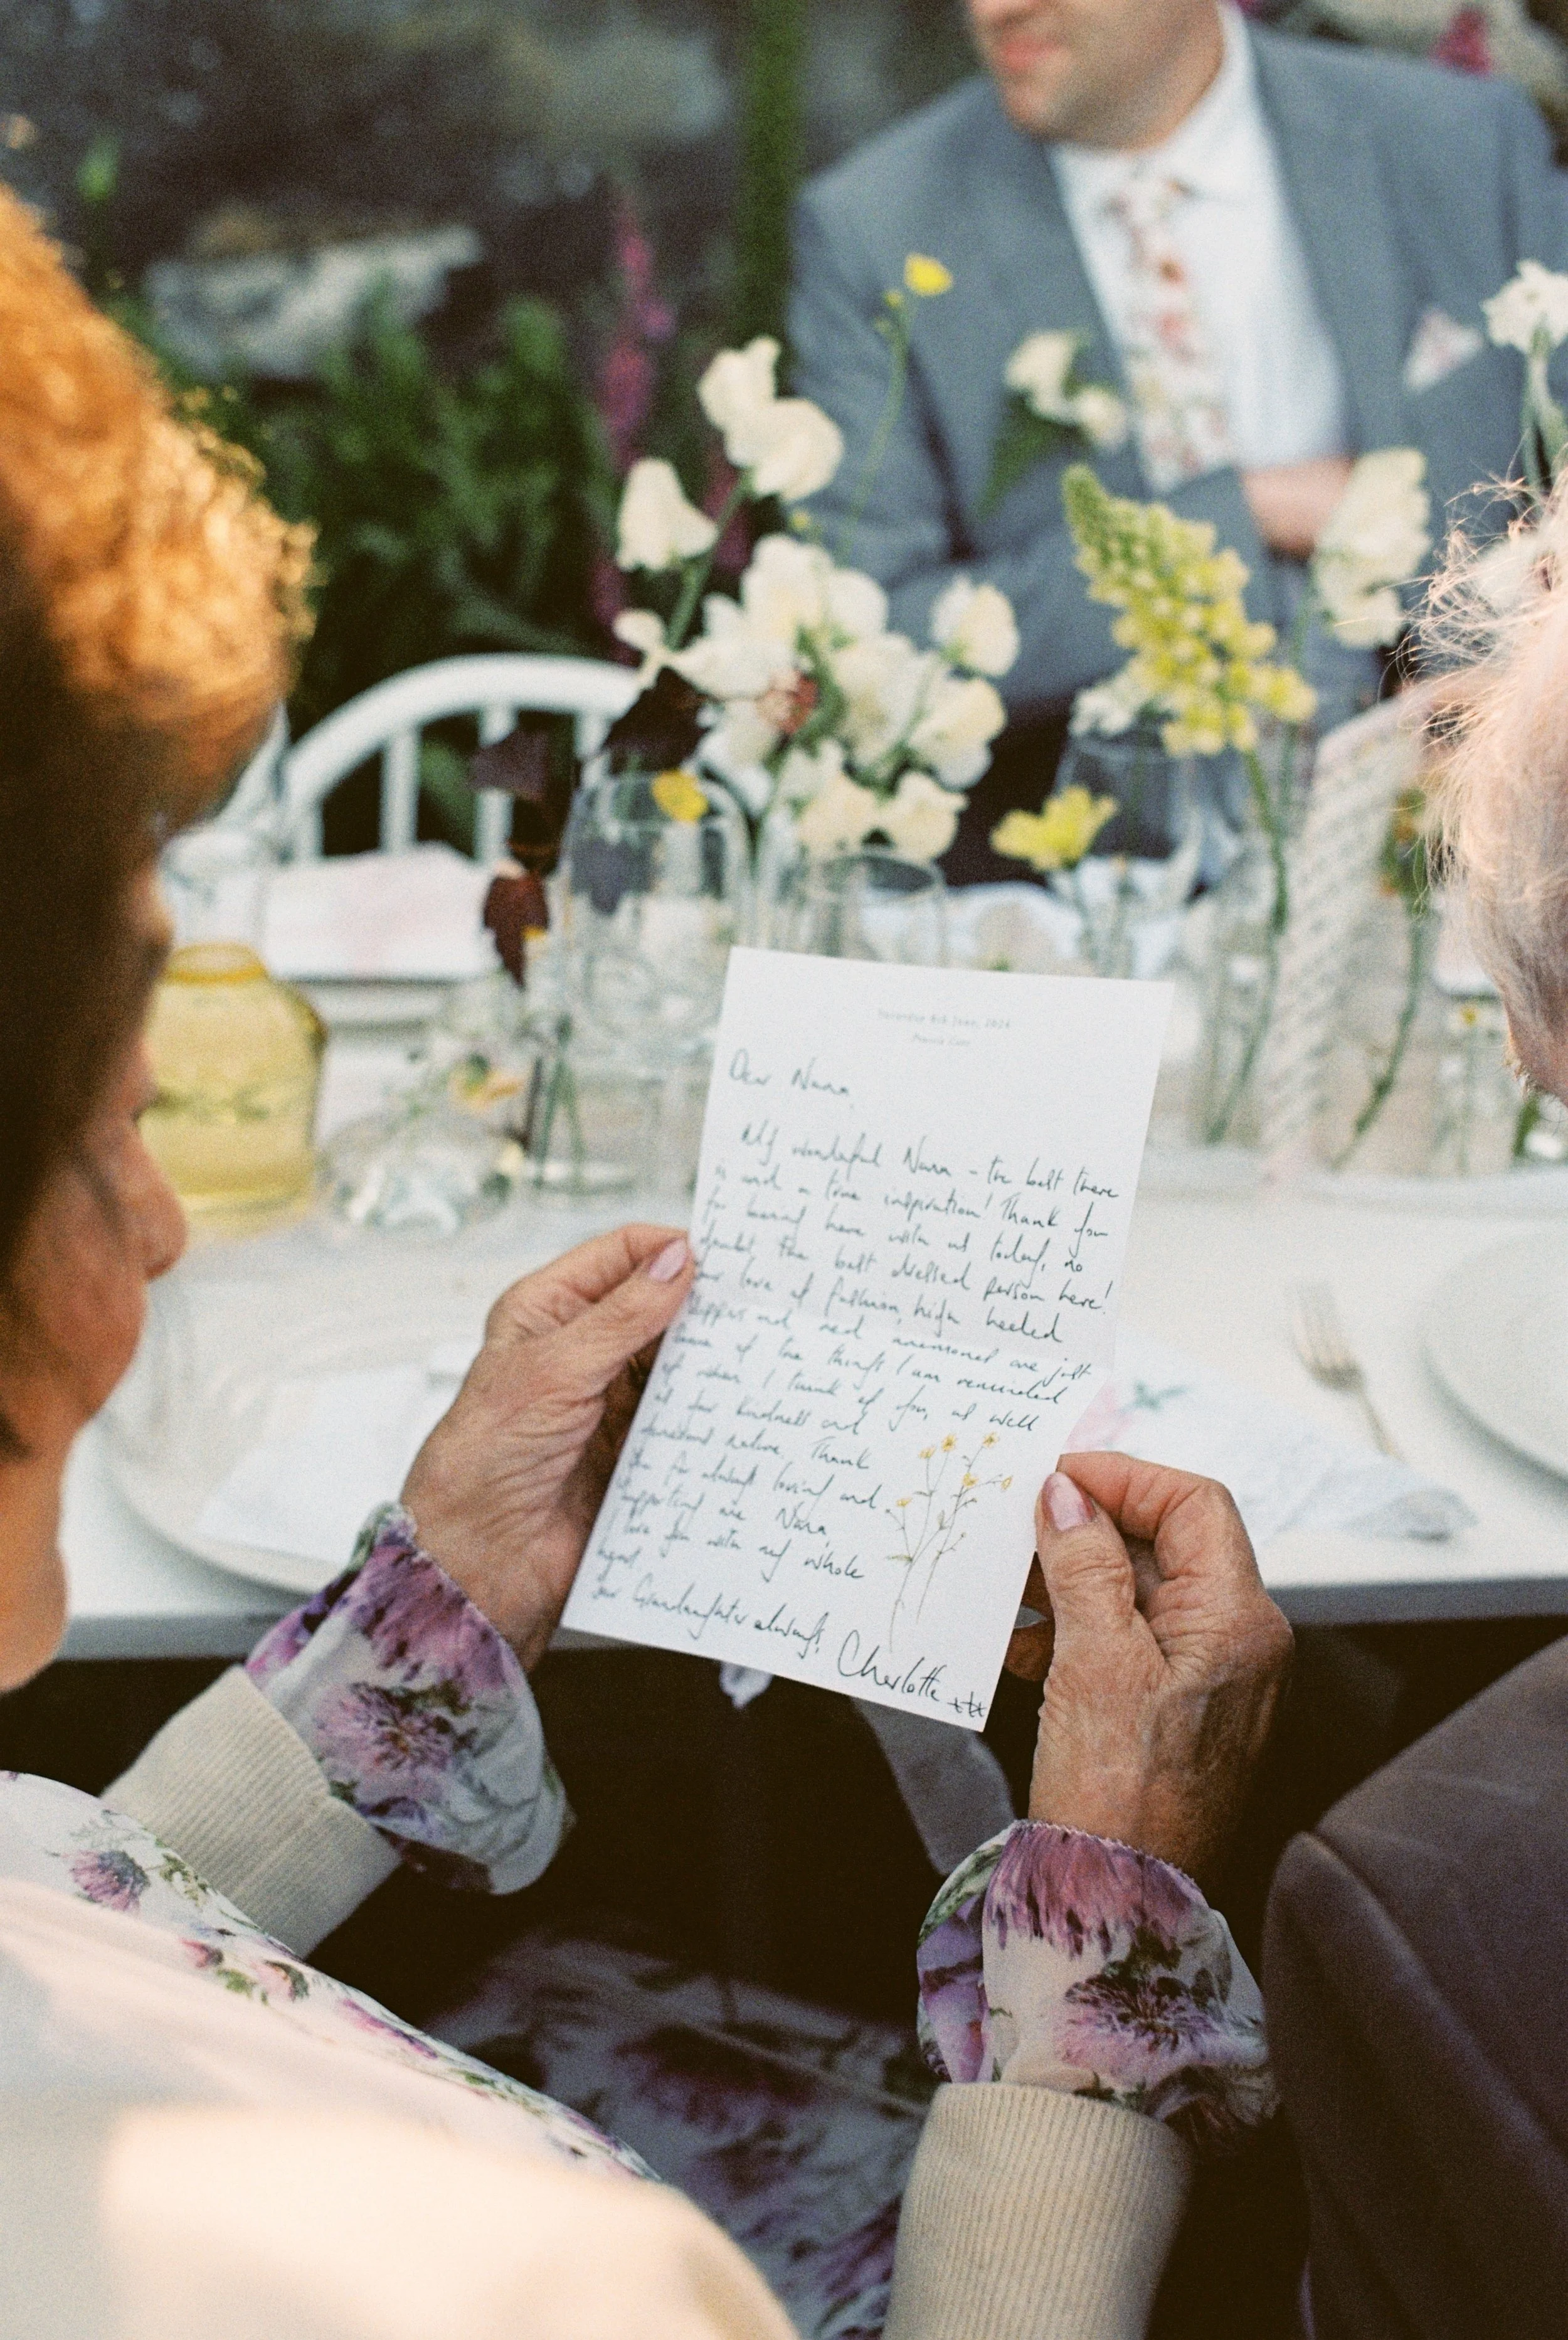 Dear Nana,
My wonderful Nana – the best there
is and a true inspiration! Thank you
for being here with us today, no
doubt the best dressed person here!
Your love of fashion, high heeled
slippers and red are just
some of the things I am reminded
of when I think of you, as well
as your kindness and
nature. Thank
you for always loving and
supporting me Nana,
I love you with my whole
heart.
Your Granddaughter always,
Charlotte xxx